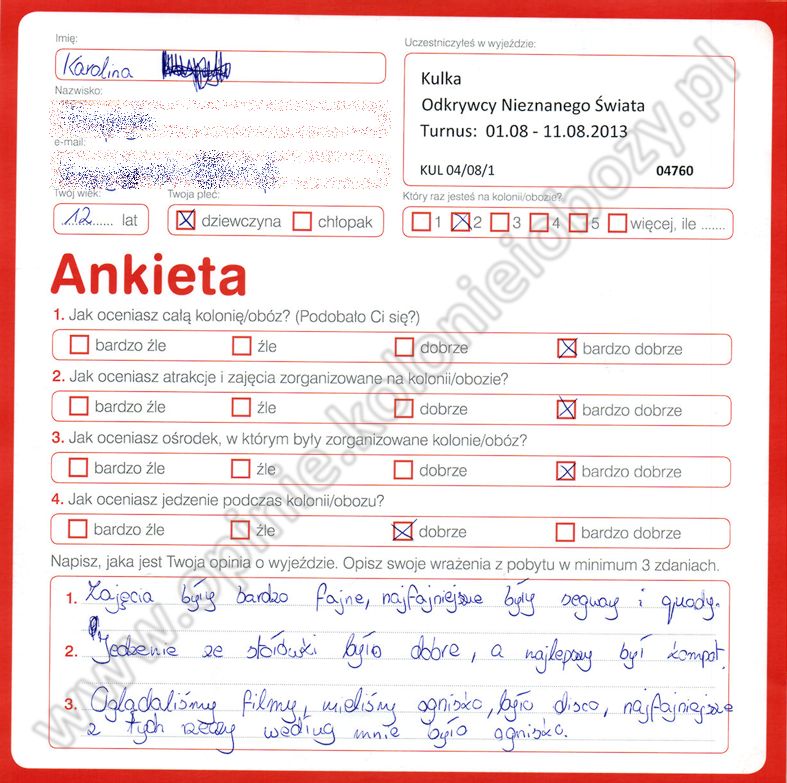 Imię:
Karolina
Uczestniczyłeś w wyjeździe:
Kulka
Odkrywcy Nieznanego Świata
Turnus: 01.08 - 11.08.2013
KUL 04/08/1 04760
Nazwisko:
e-mail:
Twój wiek:
12...... lat
Twoja płeć:
dziewczyna chłopak
Który raz jesteś na kolonii/obozie?
1 2 3 4 5 więcej, ile .......
Ankieta
1. Jak oceniasz całą kolonię/obóz? (Podobało Ci się?)
bardzo źle źle dobrze bardzo dobrze
2. Jak oceniasz atrakcje i zajęcia zorganizowane na kolonii/obozie?
bardzo źle źle dobrze bardzo dobrze
3. Jak oceniasz ośrodek, w którym były zorganizowane kolonie/obóz?
bardzo źle źle dobrze bardzo dobrze
4. Jak oceniasz jedzenie podczas kolonii/obozu?
bardzo źle źle dobrze bardzo dobrze
Napisz, jaka jest Twoja opinia o wyjeździe. Opisz swoje wrażenia z pobytu w minimum 3 zdaniach.
1. Zajęcia były bardzo fajne, najfajniejsze były segway i quady.
2. Jedzenie ze stołówki było dobre, a najlepszy był kompot.
3. Oglądaliśmy filmy, mieliśmy ognisko, było disco, najfajniejsze
z tych rzeczy według mnie było ognisko.
www.opinie.kolonieiobozy.pl